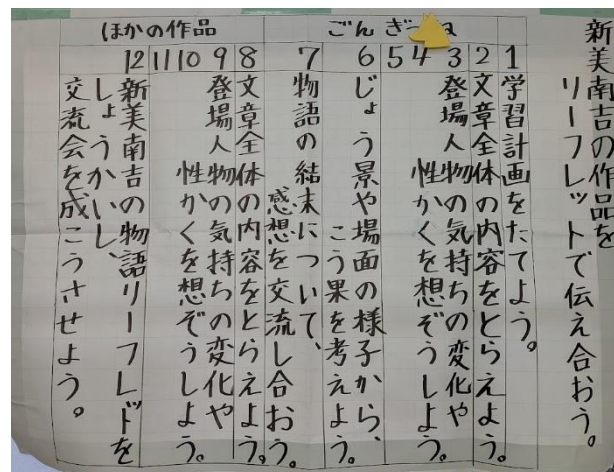 新美南吉の作品を
リーフレットで伝え合おう。
ごんぎ
1 学習計画をたてよう。
2 文章全体の内容をとらえよう。
3 登場人物の気持ちの変化や
4 性かくを想ぞうしよう。
5
6 じょう景や場面の様子から、
こう果を考えよう。
7 物語の結末について、
感想を交流し合おう。
ほかの作品
8 文章全体の内容をとらえよう。
9 登場人物の気持ちの変化や
10 性かくを想ぞうしよう。
11
12 新美南吉の物語リーフレットを
しょうかいし、
交流会を成こうさせよう。